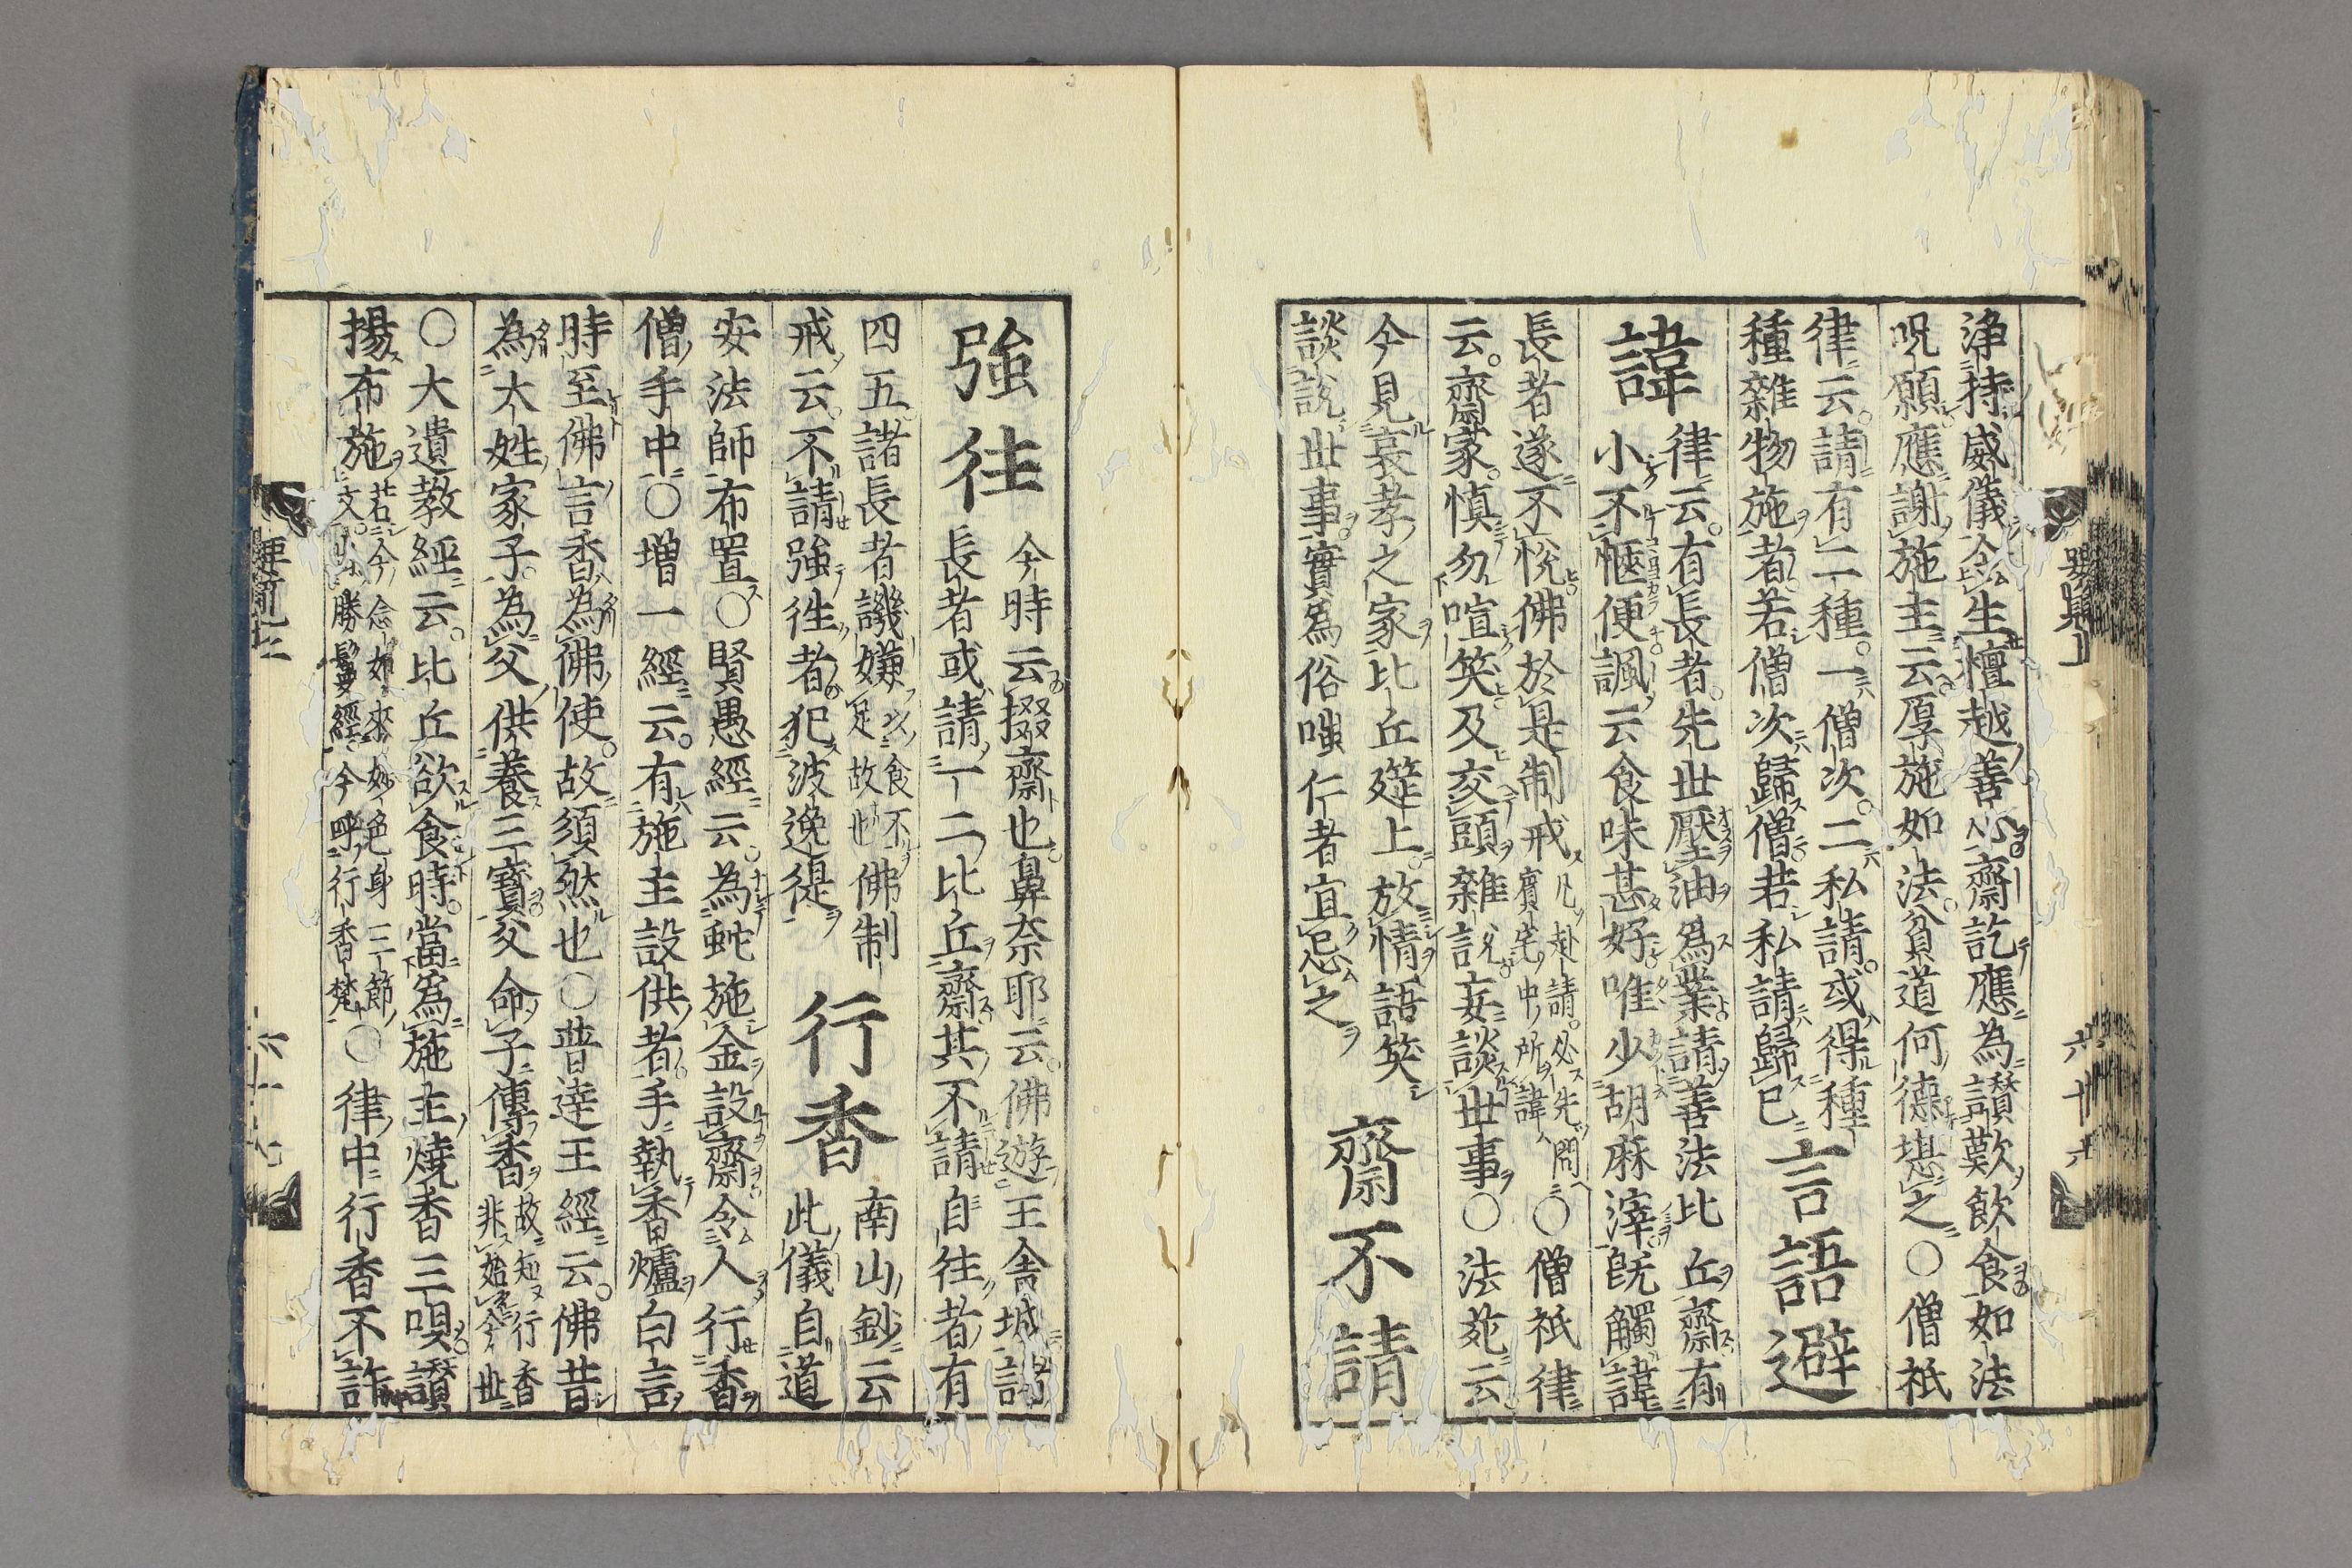 淨持威儀令生檀越善心齋訖應為讃歎飲食如法
呪願應謝施主云厚施如法貧道何德堪之〇僧祇
律云請有二種一僧次二私請或得種
種雜物施者若僧次歸僧若私請歸已
言語避
諱
律云有長者先世壓油爲業請善法比丘齋有
小不愜便諷云食味甚好唯少胡麻滓旣觸諱
長者遂不悅佛於是制戒
凡赴請必先問
賓宅中所諱
〇僧祇律
云齋家慎勿喧笑及交頭雜説妄談世事〇法苑云
今見哀孝之家比丘筵上放情語笑
談説世事實爲俗嗤仁者宜忌之
齋不請
強徃
今時云掇齋也鼻奈耶云佛遊王舎城
長者或請一二比丘齋其不請自徃者有
四五諸長者譏嫌
以食不
足故也
佛制
戒云不請強徃者犯波逸提
行香
南山鈔云
此儀自道
安法師布置〇賢愚經云為蛇施金設齋令人行香
僧手中〇增一經云有施主設供者手執香爐白言
時至佛言香為佛使故須然也〇普達王經云佛昔
為大姓家子為父供養三寶父命子傳香
故知行香
非始今世
〇大遺教經云比丘欲食時當為施主燒香三唄讃
揚布施
若今念如來妙色身三節
文出勝鬘經今呼行香梵
〇律中行香不許
六十六
六十七